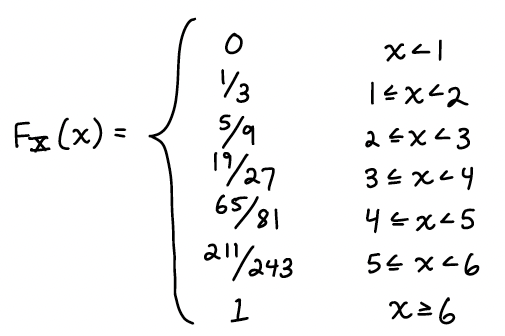 0 x<1
1/3 1≤x<2
5/9 2≤x<3
F_X(x) = 19/27 3≤x<4
65/81 4≤x<5
211/243 5≤x<6
1 x≥6